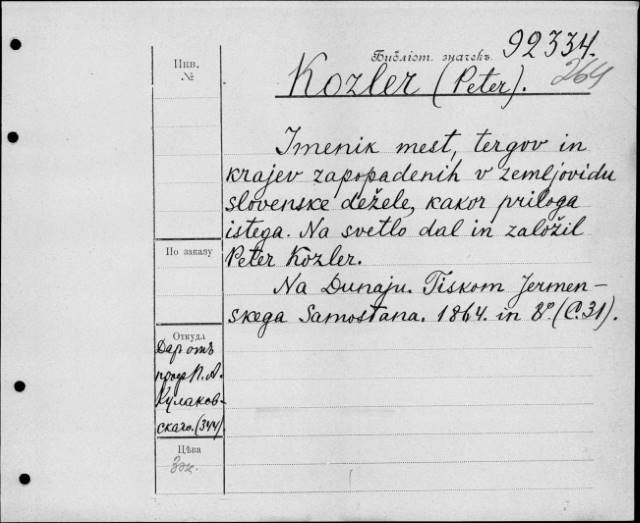 Инв.
№
Библіот. значекъ 92334.
264
Kozler (Peter).
Imenik mest, tergov in
krajev zapopadenih v zemljovidu
slovenske dežele, kakor priloga
istega. Na svetlo dal in založil
Peter Kozler.
Na Dunaju. Tiskom Jermen-
skega Samostana. 1864. in 8º. (C. 31).
По заказу
Откуда
Даръ отъ
проф. П. А.
Кулаков-
скаго. (344).
Цѣна